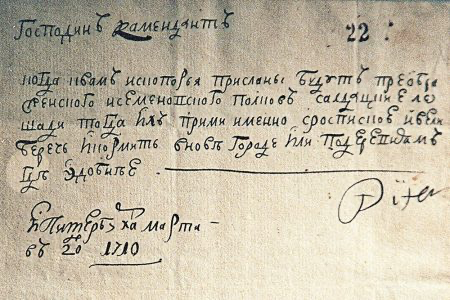 Господинъ каменданть
22
когда квамъ присланы будутъ преобра
женского исеменовского полковъ салдацкие ло
шади тогда ихъ прими именно сроспискою ивели
беречь икормить городе или подеревнямъ
гдѣ удобнѣе
Piter
марта
въ 20 1710